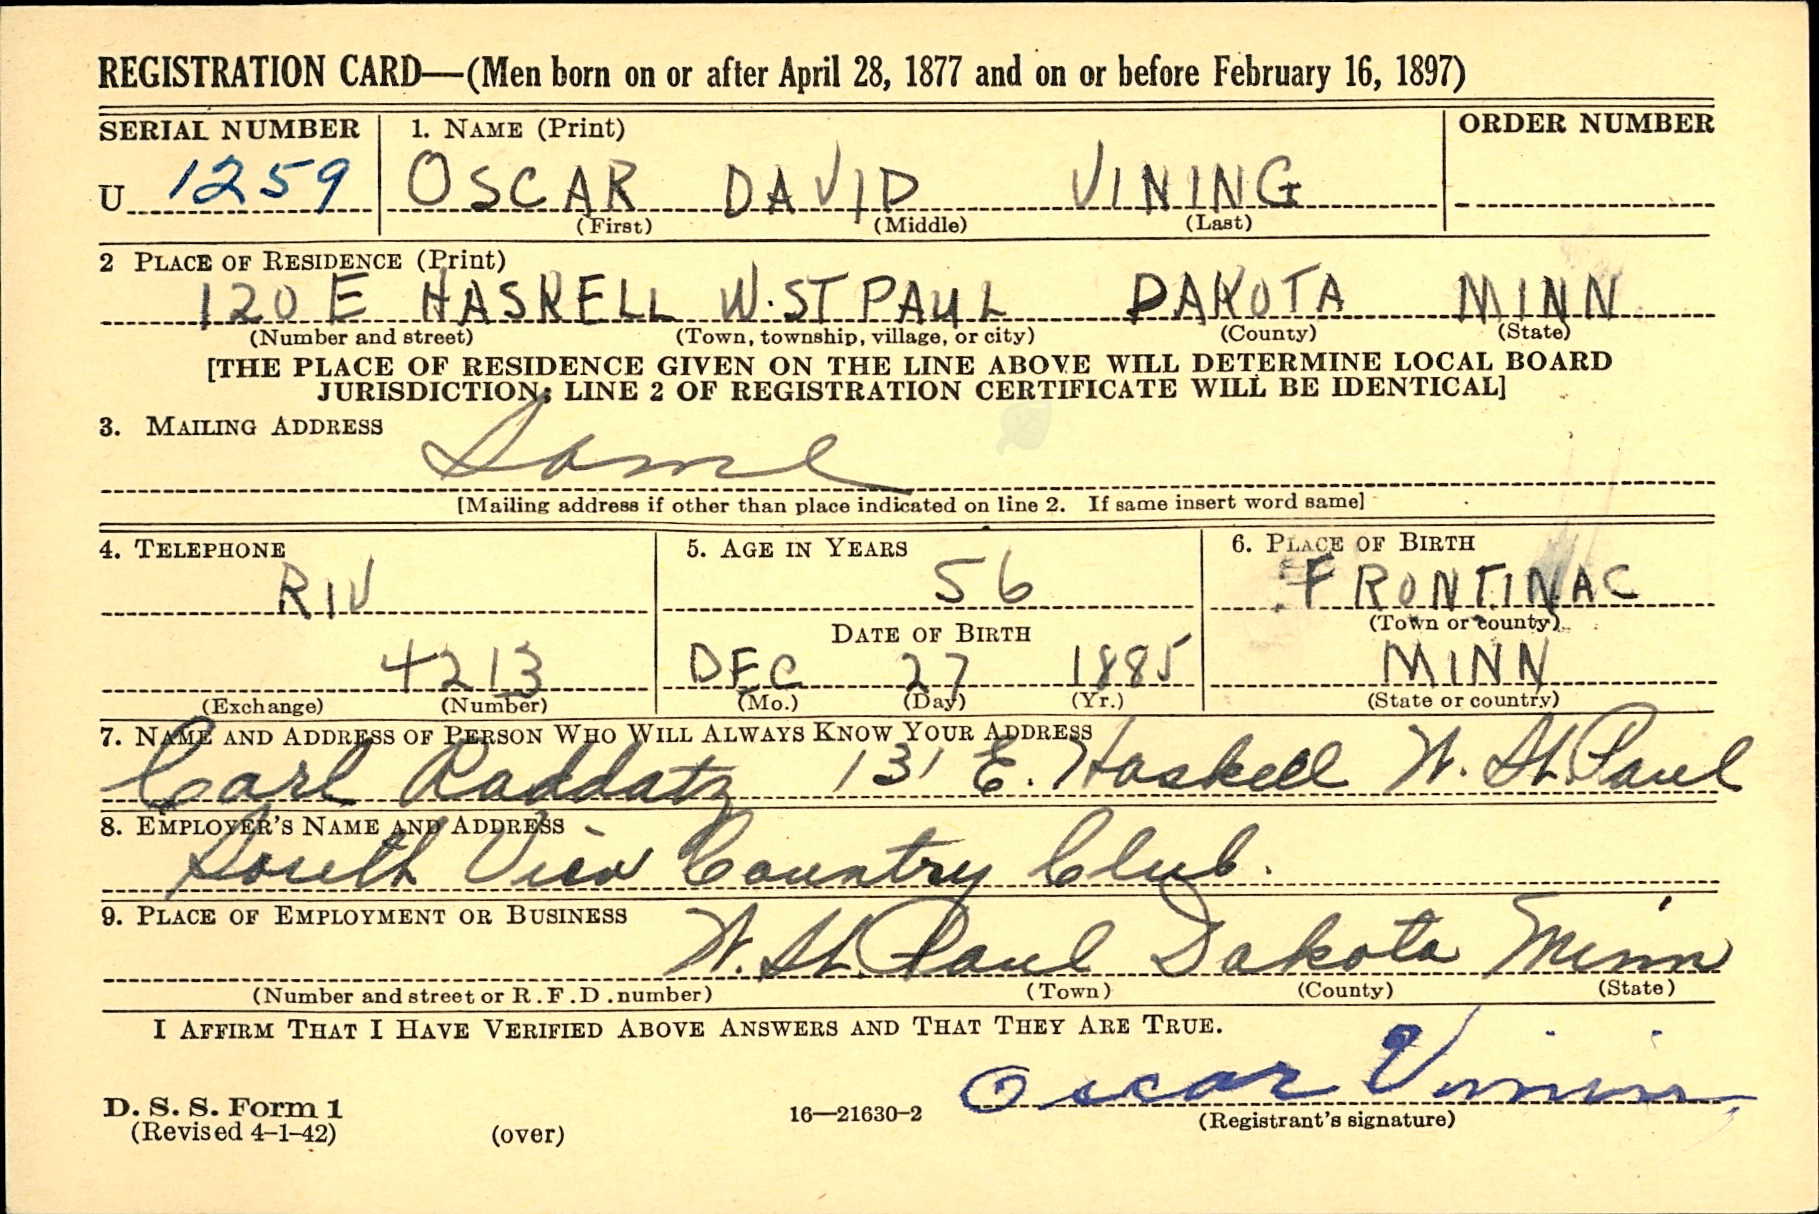 REGISTRATION CARD—(Men born on or after April 28, 1877 and on or before February 16, 1897)
SERIAL NUMBER 1. NAME (Print) ORDER NUMBER
U 1259 OSCAR DAVID VINING
(First) (Middle) (Last)
2 PLACE OF RESIDENCE (Print)
120 E HASKELL W. ST PAUL DAKOTA MINN
(Number and street) (Town, township, village, or city) (County) (State)
[THE PLACE OF RESIDENCE GIVEN ON THE LINE ABOVE WILL DETERMINE LOCAL BOARD
JURISDICTION; LINE 2 OF REGISTRATION CERTIFICATE WILL BE IDENTICAL]
3. MAILING ADDRESS
Same
[Mailing address if other than place indicated on line 2. If same insert word same]
4. TELEPHONE 5. AGE IN YEARS 6. PLACE OF BIRTH
RIV 56 FRONTINAC
(Town or county)
DATE OF BIRTH
4213 DEC 27 1885 MINN
(Exchange) (Number) (Mo.) (Day) (Yr.) (State or country)
7. NAME AND ADDRESS OF PERSON WHO WILL ALWAYS KNOW YOUR ADDRESS
Carl Raddatz 131 E. Haskell W. St. Paul
8. EMPLOYER'S NAME AND ADDRESS
South View Country Club.
9. PLACE OF EMPLOYMENT OR BUSINESS
W. St. Paul Dakota Minn
(Number and street or R.F.D. number) (Town) (County) (State)
I AFFIRM THAT I HAVE VERIFIED ABOVE ANSWERS AND THAT THEY ARE TRUE.
Oscar Vining
D. S. S. Form 1 16—21630-2 (Registrant's signature)
(Revised 4-1-42) (over)